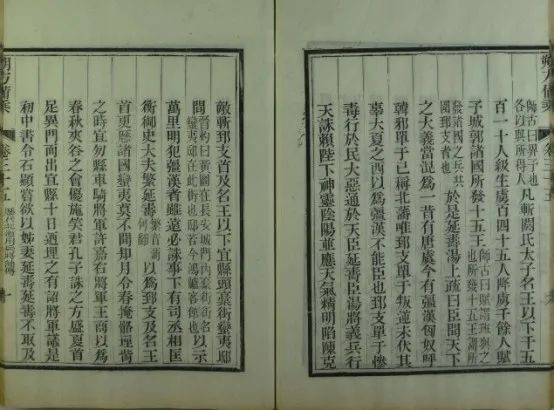 朔方備乘
卷三十五
師古曰界予也
各以與所得人
凡斬閼氏太子名王以下千五
百一十八級生虜百四十五人降虜千餘人賦
子城郭諸國所發十五王
師古曰賦謂班與之
也所發十五王謂所
發諸國之兵共
圍郅支者也
於是延壽湯上疏曰臣聞天下
之大義當混爲一昔有唐虞今有彊漢匈奴呼
韓邪單于已稱北藩唯郅支單于叛逆未伏其
辜大夏之西以爲彊漢不能臣也郅支單于慘
毒行於民大惡通於天臣延壽臣湯將義兵行
天誅賴陛下神靈陰陽並應天氣精明陷陳克
敵斬郅支首及名王以下宜縣頭槀街蠻夷邸
間
晉灼曰黃圖在長安城門內槀街街名
蠻夷邸在此街也邸若今鴻臚客館也
以示
萬里明犯彊漢者雖遠必誅事下有司丞相匡
衡御史大夫繁延壽
繁音蒲
何翻
以爲郅支及名王
首更歷諸國蠻夷莫不聞知月令春掩骼埋胔
之時宜勿縣車騎將軍許嘉右將軍王商以爲
春秋夾谷之會優施笑君孔子誅之方盛夏首
足異門而出宜縣十日迺埋之有詔將軍議是
初中書令石顯嘗欲以姊妻延壽延壽不取及
朔方備乘
卷三十五